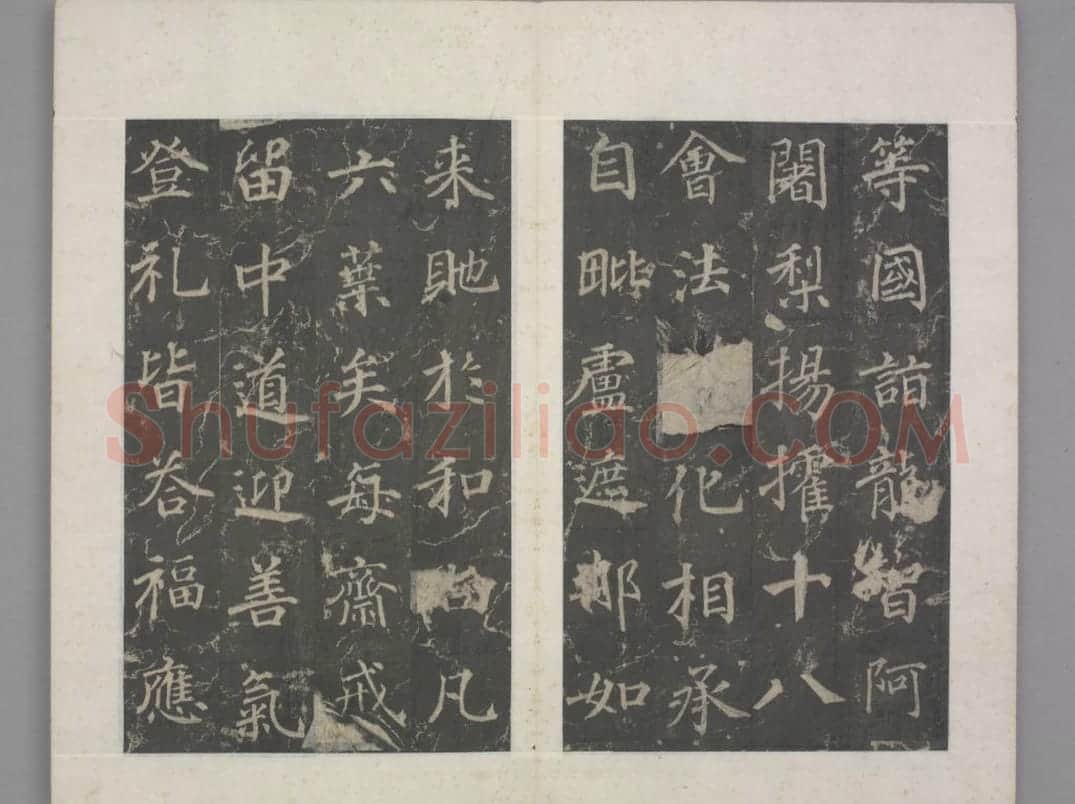 等國詣龍智阿
闍梨揚擢十八
會法化相承
自毗盧遮那如
来貤於和尚凡
六葉矣每齋戒
留中道迎善氣
登礼皆荅福應
Shufaziliao.COM